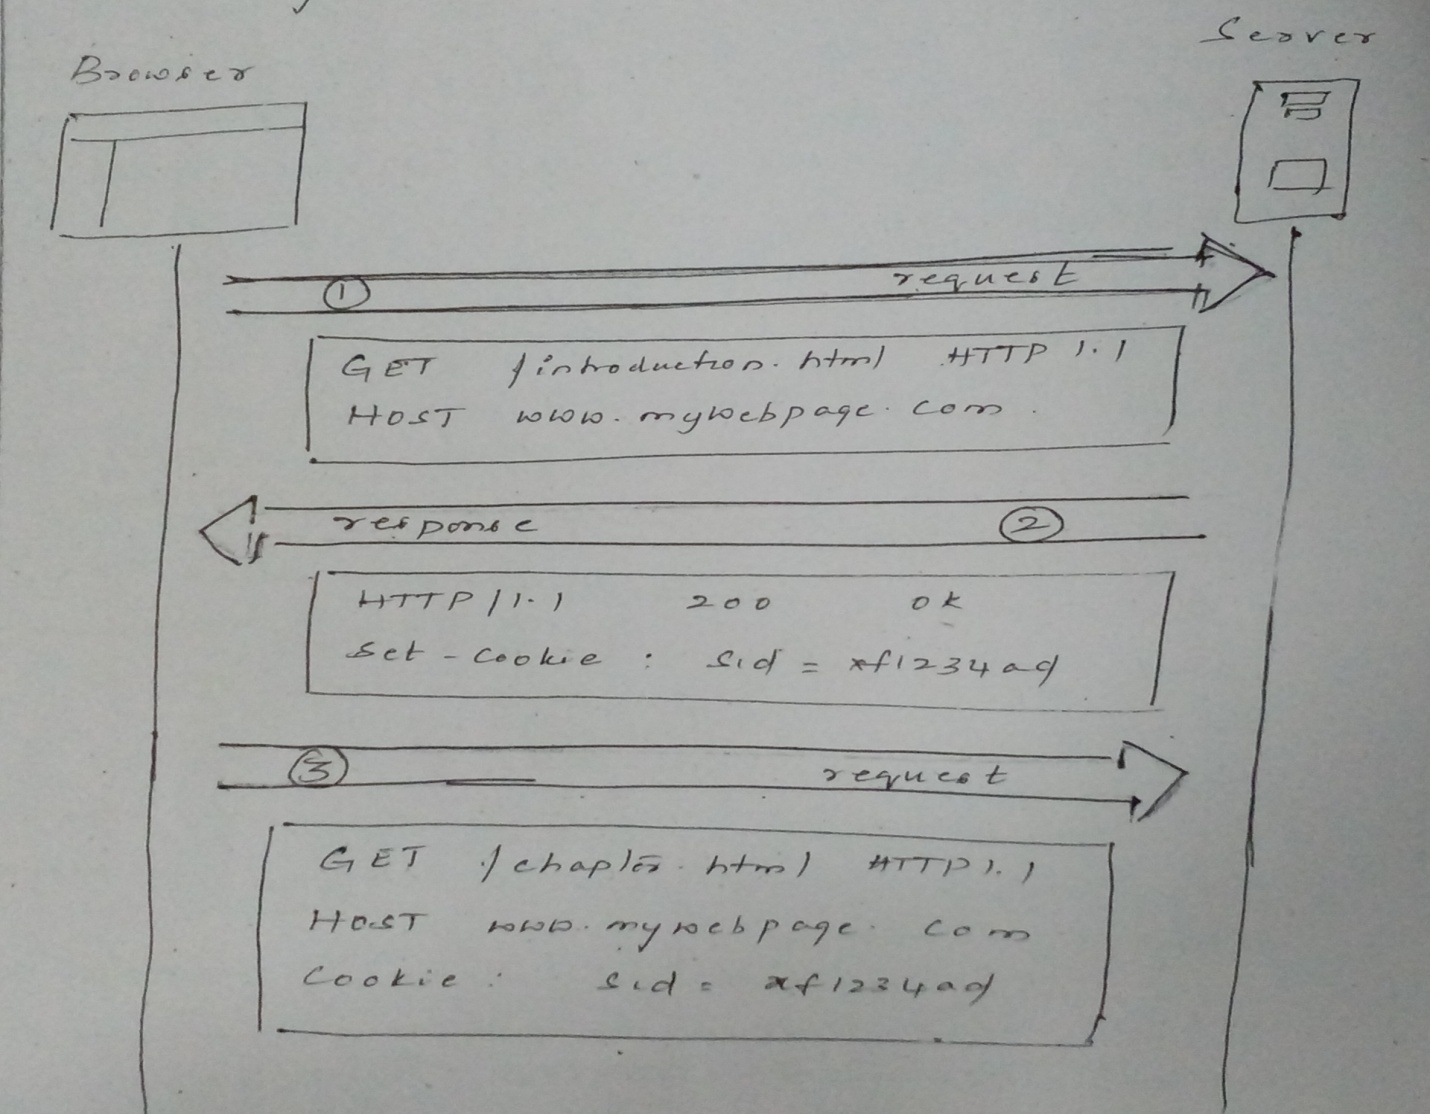 Browser
Server
1 request
GET /introduction.html HTTP 1.1
HOST www.mywebpage.com
response 2
HTTP/1.1 200 OK
Set-Cookie : Sid = xf1234ad
3 request
GET /chapter.html HTTP 1.1
HOST www.mywebpage.com
Cookie : Sid = xf1234ad